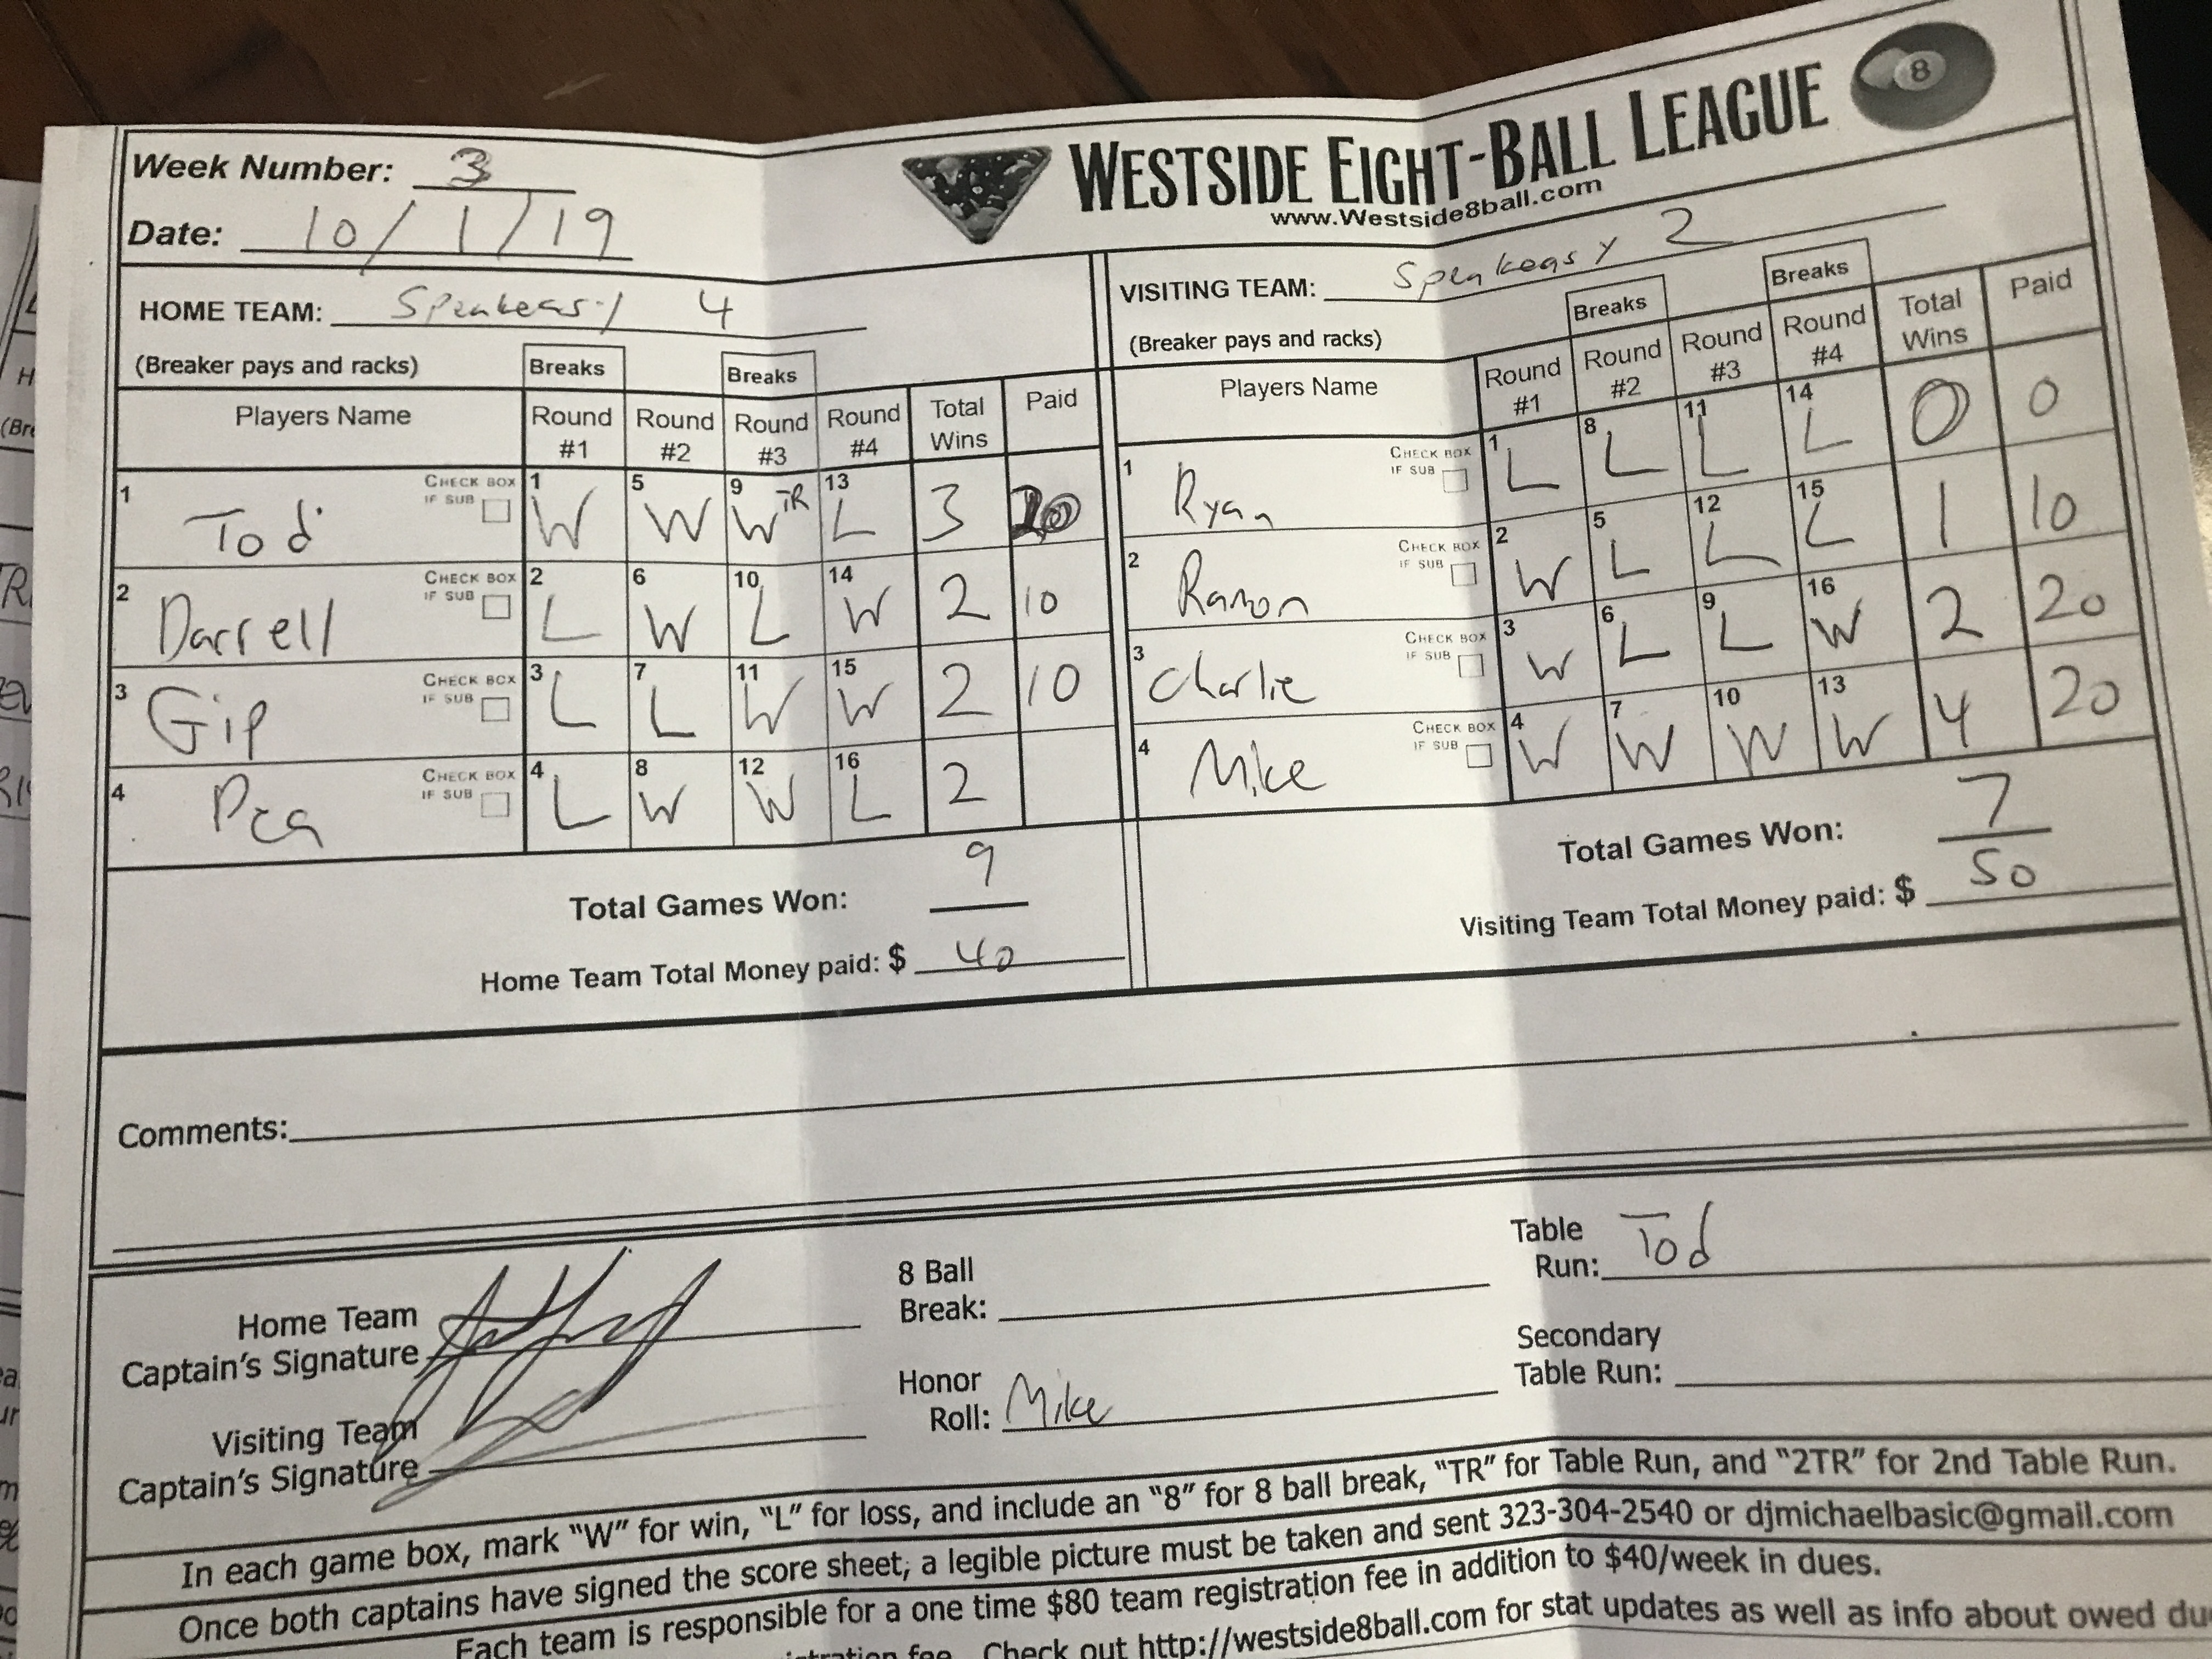 Week Number: 3
Date: 10/1/19
WESTSIDE EIGHT-BALL LEAGUE
8
www.Westside8ball.com
HOME TEAM: Speakeasy 4
(Breaker pays and racks)
Breaks
Breaks
Players Name Round #1 Round #2 Round #3 Round #4 Total Wins Paid
1 Tod CHECK BOX IF SUB 1 W 5 W 9 W TR 13 L 3 20
2 Darrell CHECK BOX IF SUB 2 L 6 W 10 L 14 W 2 10
3 Gip CHECK BOX IF SUB 3 L 7 L 11 W 15 W 2 10
4 CHECK BOX IF SUB 4 L 8 W 12 W 16 L 2
Total Games Won: 9
Home Team Total Money paid: $ 40
VISITING TEAM: Speakeasy 2
(Breaker pays and racks)
Breaks
Breaks
Players Name Round #1 Round #2 Round #3 Round #4 Total Wins Paid
1 Ryan CHECK BOX IF SUB 1 L 8 L 11 L 14 L 0 0
2 Ramon CHECK BOX IF SUB 2 W 5 L 12 L 15 L 1 10
3 Charlie CHECK BOX IF SUB 3 W 6 L 9 L 16 W 2 20
4 Mike CHECK BOX IF SUB 4 W 7 W 10 W 13 W 4 20
Total Games Won: 7
Visiting Team Total Money paid: $ 50
Comments:
Home Team
Captain's Signature
Visiting Team
Captain's Signature
8 Ball
Break:
Honor
Roll: Mike
Table
Run: Tod
Secondary
Table Run:
In each game box, mark "W" for win, "L" for loss, and include an "8" for 8 ball break, "TR" for Table Run, and "2TR" for 2nd Table Run.
Once both captains have signed the score sheet, a legible picture must be taken and sent 323-304-2540 or djmichaelbasic@gmail.com
Each team is responsible for a one time $80 team registration fee in addition to $40/week in dues.
fee. Check out http://westside8ball.com for stat updates as well as info about owed